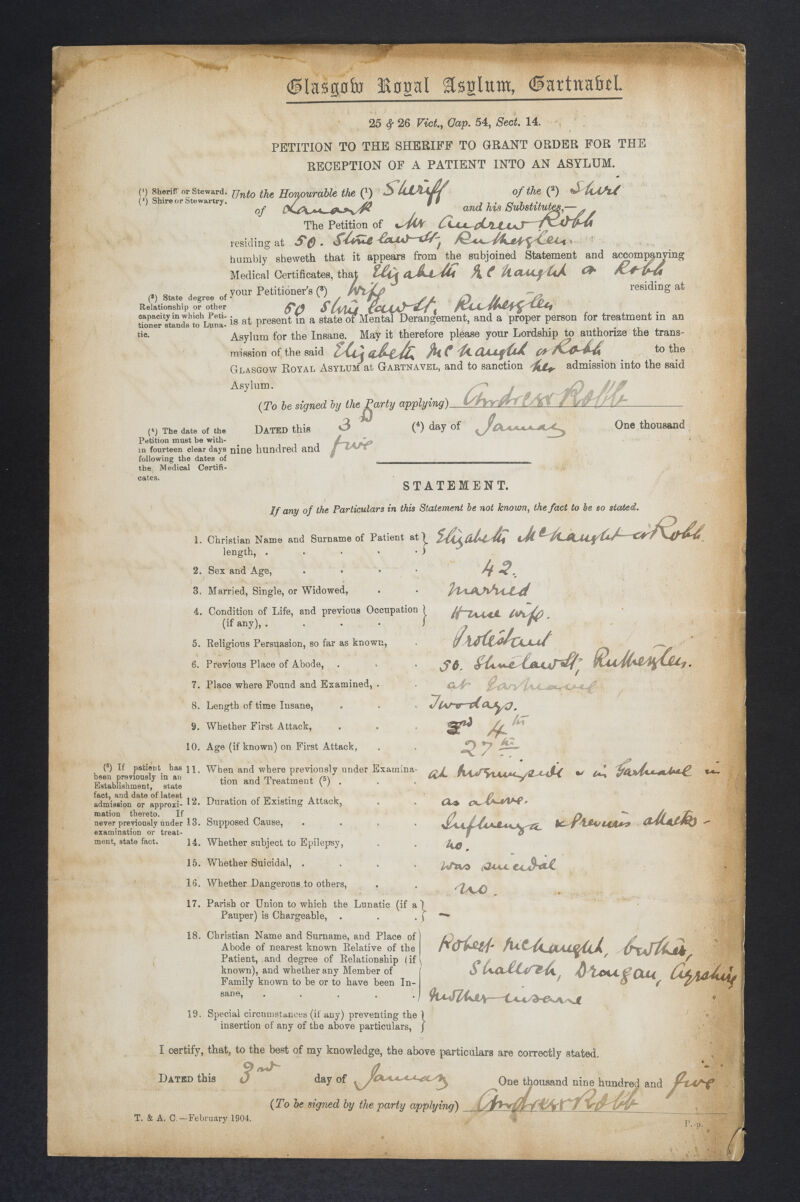 Glasgow Royal Asylum, Gartnabel.
25 & 26 Vict., Cap. 54, Sect. 14.
PETITION TO THE SHERIFF TO GRANT ORDER FOR THE
RECEPTION OF A PATIENT INTO AN ASYLUM.
(¹) Sheriff or Steward.
(²) Shire or Stewartry.
Unto the Honourable the (¹) Sheriff of the (²) Shire
of Lanark and his Substitutes,—
The Petition of Mr Andrew Robb
residing at 50. Stonelaw St, Rutherglen.
humbly sheweth that it appears from the subjoined Statement and accompanying
Medical Certificates, that Elizabeth McNaught or Robb
your Petitioner's (³) Wife residing at
50 Stonelaw St, Rutherglen
(³) State degree of
Relationship or other
capacity in which Peti-
tioner stands to Luna-
tic.
is at present in a state of Mental Derangement, and a proper person for treatment in an
Asylum for the Insane. May it therefore please your Lordship to authorize the trans-
mission of the said Elizabeth McNaught or Robb to the
GLASGOW ROYAL ASYLUM at GARTNAVEL, and to sanction her admission into the said
Asylum.
(To be signed by the Party applying) Andrew Robb
(⁴) The date of the
Petition must be with-
in fourteen clear days
following the dates of
the Medical Certifi-
cates.
DATED this 3rd (⁴) day of January One thousand
nine hundred and five
STATEMENT.
If any of the Particulars in this Statement be not known, the fact to be so stated.
1. Christian Name and Surname of Patient at length, . . . . . Elizabeth McNaught or Robb.
2. Sex and Age, . . . . 42.
3. Married, Single, or Widowed, . . Married
4. Condition of Life, and previous Occupation (if any), . . . . . House wife.
5. Religious Persuasion, so far as known, . Protestant
6. Previous Place of Abode, . . . 50. Stonelaw St, Rutherglen.
7. Place where Found and Examined, . . at Gartnavel
8. Length of time Insane, . . . Two days.
9. Whether First Attack, . . . 3rd 4th
10. Age (if known) on First Attack, . . 27th
(⁵) If patient has
been previously in an
Establishment, state
fact, and date of latest
admission or approxi-
mation thereto. If
never previously under
examination or treat-
ment, state fact.
11. When and where previously under Examina-
tion and Treatment (⁵) . . . at Morningside & in Gartnavel in
12. Duration of Existing Attack, . . as above.
13. Supposed Cause, . . . . Influenza & Previous attacks -
14. Whether subject to Epilepsy, . . no.
15. Whether Suicidal, . . . . was suicidal
16. Whether Dangerous to others, . . no.
17. Parish or Union to which the Lunatic (if a
Pauper) is Chargeable, . . . —
18. Christian Name and Surname, and Place of
Abode of nearest known Relative of the
Patient, and degree of Relationship (if
known), and whether any Member of
Family known to be or to have been In-
sane, . . . . .
Robert McNaught, brother,
Shalloch, Drongan, Ayrshire
Mother insane
19. Special circumstances (if any) preventing the
insertion of any of the above particulars,
I certify, that, to the best of my knowledge, the above particulars are correctly stated.
DATED this 3rd day of January One thousand nine hundred and five
(To be signed by the party applying) Andrew Robb
T. & A. C.—February 1904.
P. p.